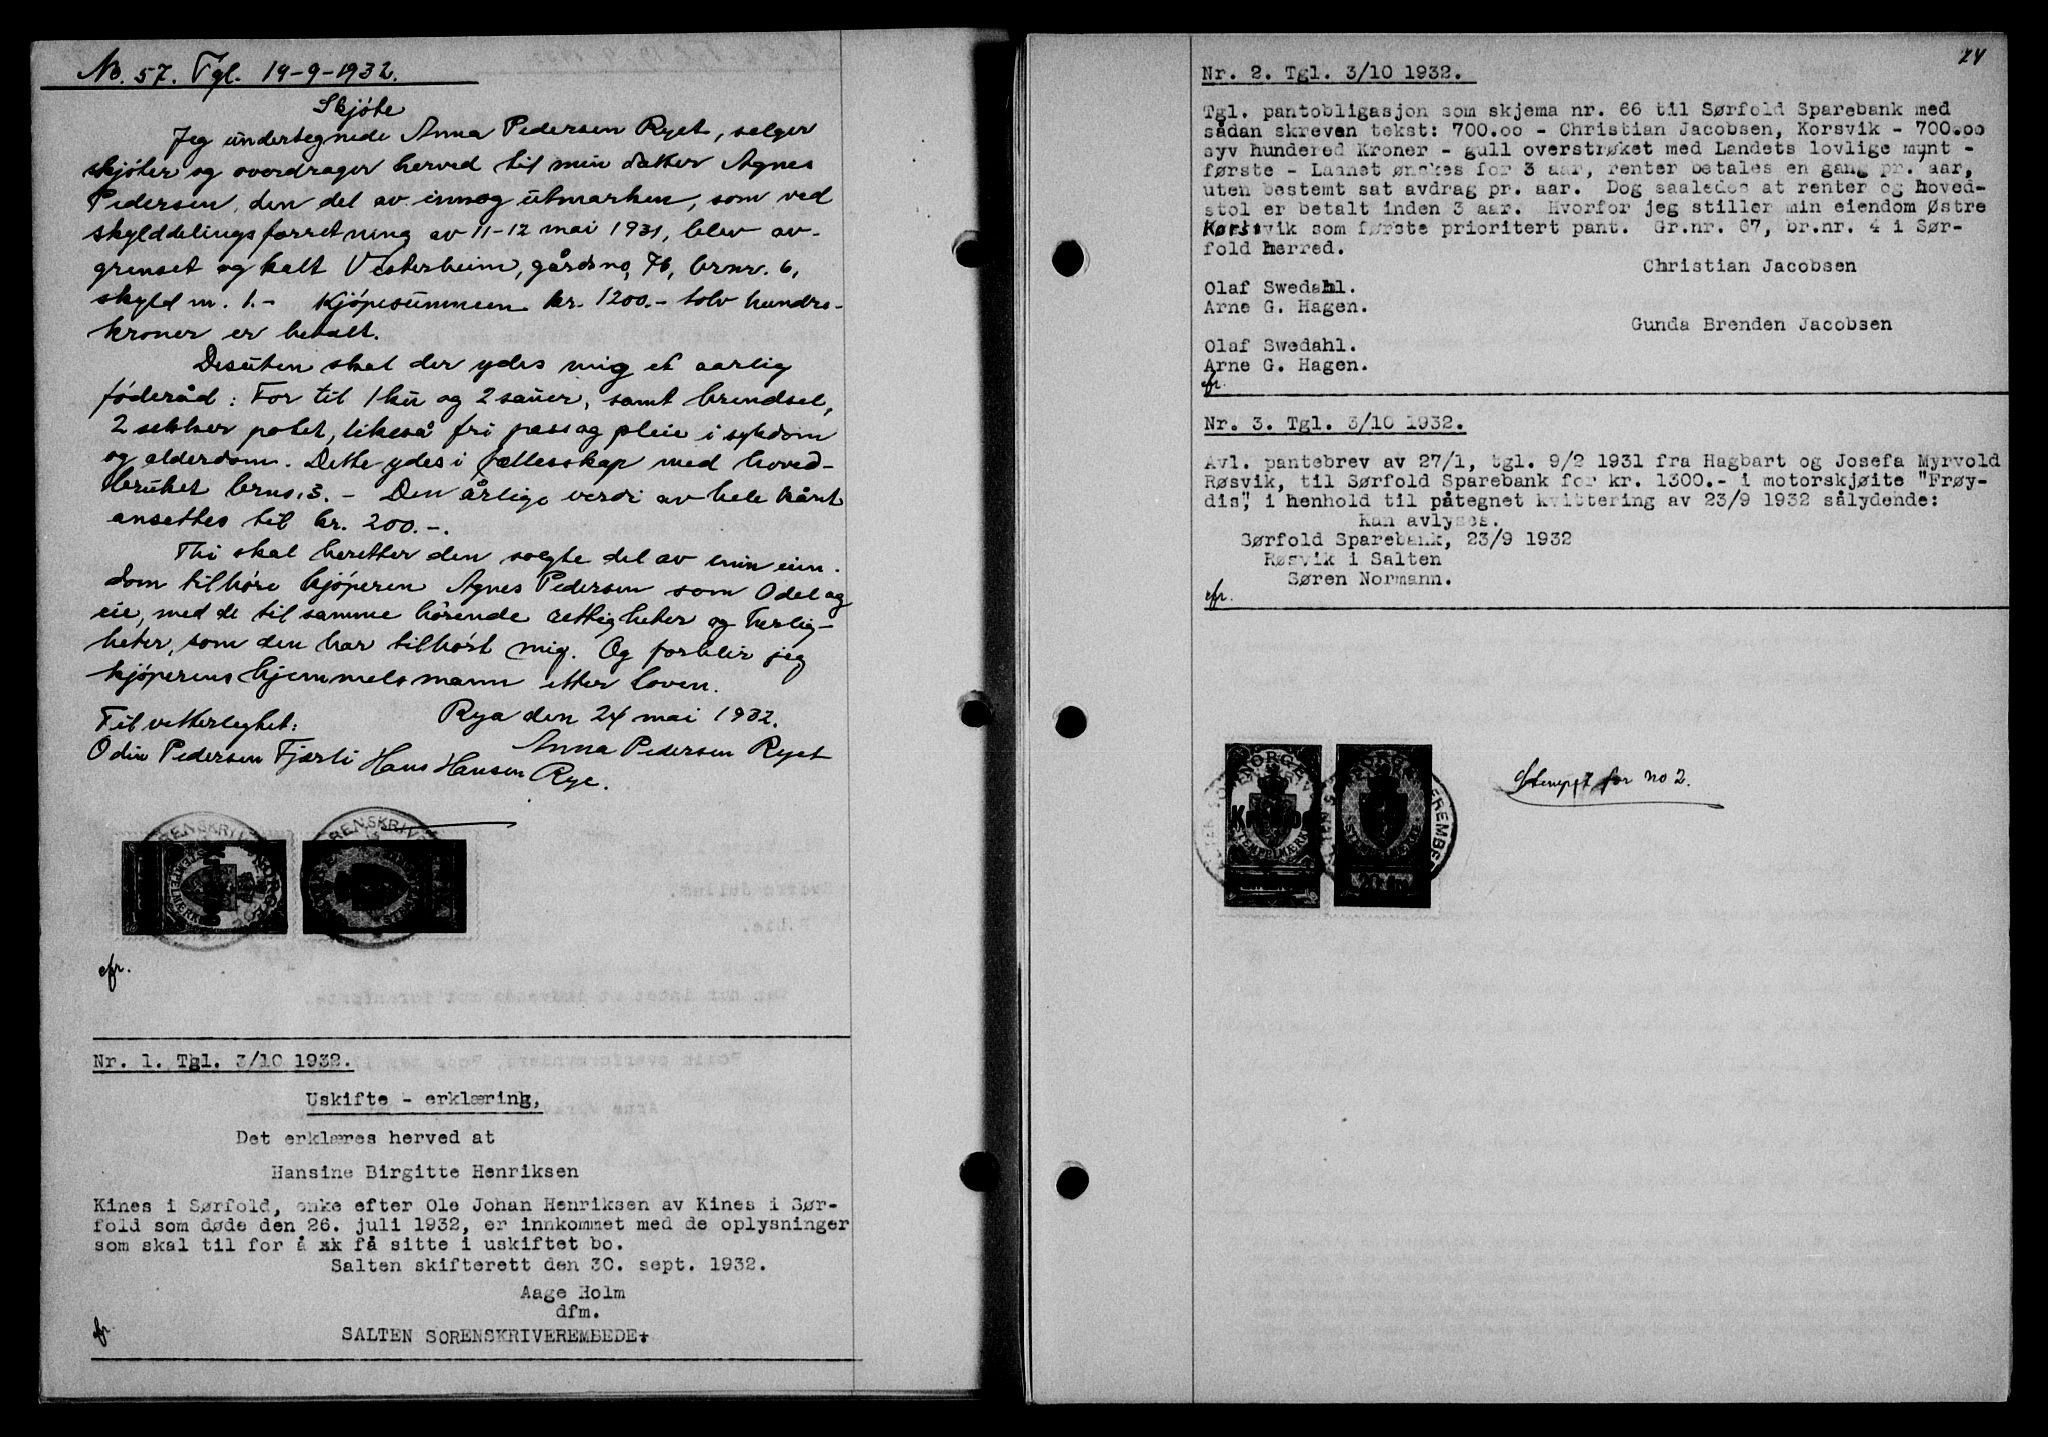 No. 57. Tgl. 19-9-1932.
Skjöte
Jeg undertegnede Anna Pedersen Ryet, selger
skjöter og overdrager herved til min datter Agnes
Pedersen, den del av innog utmarken, som ved
skylddelingsforretning av 11-12 mai 1931, blev av-
grenset og kalt Vesterheim, gårdsno, 76, brnr. 6,
skyld m. 1.- Kjöpesummen kr. 1200.- tolv hundre-
kroner er betalt.
Desuten skal der ydes mig et aarlig
föderåd: For til 1 ku og 2 sauer, samt brendsel,
2 sekker potet, likeså fri pass og pleie i sykdom
og alderdom. Dette ydes i fællesskap med hoved-
bruket brno. 3. - Den årlige verdi av hele kåret
ansettes til kr. 200.-.
Thi skal heretter den solgte del av min eien-
dom tilhöre kjöperen Agnes Pedersen som Odel og
eie, med de til samme hörende rettigheter og herlig-
heter, som den har tilhört mig. Og forblir jeg
kjöperens hjemmelsmann etter loven.
Rya den 24 mai 1932.
Til vitterleghet:
Anna Pedersen Ryet
Odin Pedersen Fjærli Hans Hansen Rye.
NORGE
STEMPELMÆRKE
cfr.
Nr. 1. Tgl. 3/10 1932.
Uskifte - erklæring,
Det erklæres herved at
Hansine Birgitte Henriksen
Kines i Sørfold, enke efter Ole Johan Henriksen av Kines i Sør-
fold som døde den 26. juli 1932, er innkommet med de oplysninger
som skal til for å xk få sitte i uskiftet bo.
Salten skifterett den 30. sept. 1932.
Aage Holm
dfm.
cfr
SALTEN SORENSKRIVEREMBEDE+
24
Nr. 2. Tgl. 3/10 1932.
Tgl. pantobligasjon som skjema nr. 66 til Sørfold Sparebank med
sådan skreven tekst: 700.oo - Christian Jacobsen, Korsvik - 700.oo
syv hundered Kroner - gull overstrøket med Landets lovlige mynt -
første - Laanet ønskes for 3 aar, renter betales en gang pr. aar,
uten bestemt sat avdrag pr. aar. Dog saaledes at renter og hoved-
stol er betalt inden 3 aar. Hvorfor jeg stiller min eiendom Østre
Korsvik som første prioritert pant. Gr.nr. 67, br.nr. 4 i Sør-
fold herred.
Christian Jacobsen
Olaf Swedahl.
Arne G. Hagen.
Gunda Brenden Jacobsen
Olaf Swedahl.
Arne G. Hagen.
cfr.
Nr. 3. Tgl. 3/10 1932.
Avl. pantebrev av 27/1, tgl. 9/2 1931 fra Hagbart og Josefa Myrvold
Røsvik, til Sørfold Sparebank for kr. 1300.- i motorskjøite "Frøy-
dis", i henhold til påtegnet kvittering av 23/9 1932 sålydende:
Kan avlyses.
Sørfold Sparebank, 23/9 1932
Røsvik i Salten
Søren Normann.
cfr.
NORGE
STEMPELMÆRKE
Stempel for no 2.